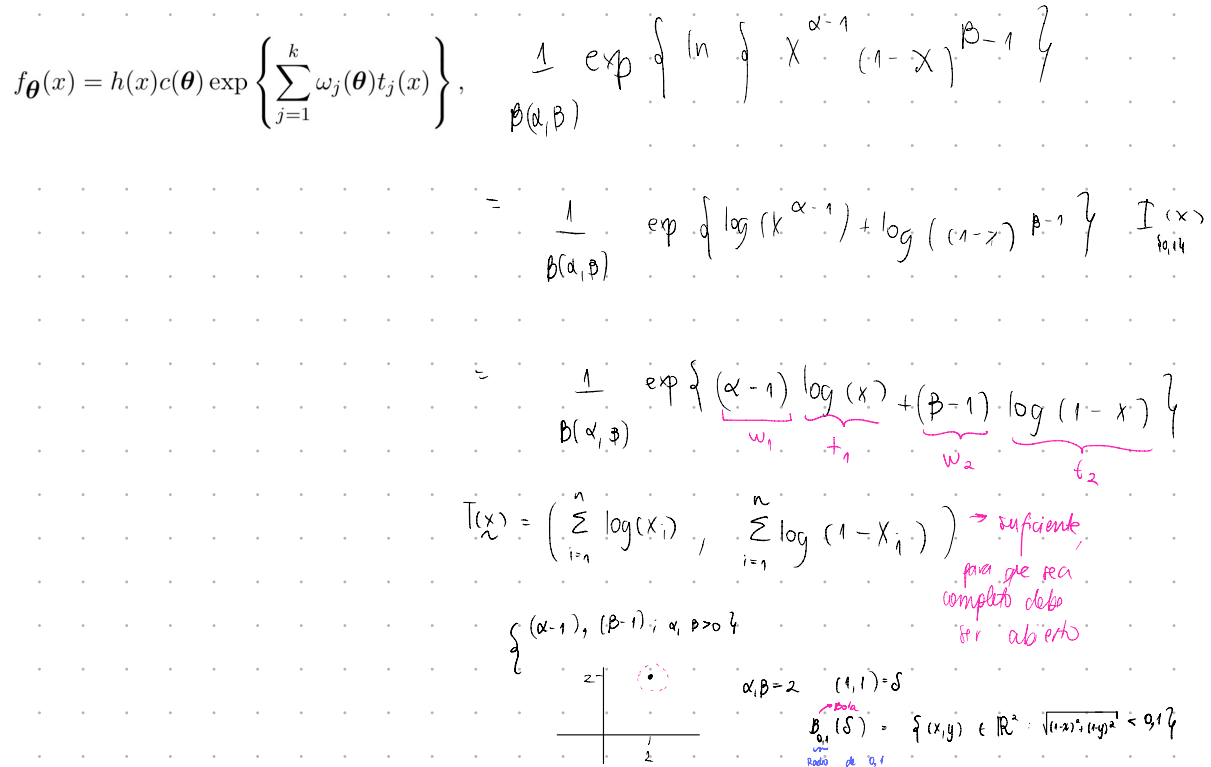 f_θ(x) = h(x)c(θ) exp { ∑_{j=1}^{k} ω_j(θ)t_j(x) } ,
1/B(α,β) exp { ln { x^{α-1} (1-x)^{β-1} }
= 1/B(α,β) exp { log(x^{α-1}) + log((1-x)^{β-1} } I_{(0,1)}(x)
= 1/B(α,β) exp { (α-1) log(x) + (β-1) log(1-x) }
w_1 t_1 w_2 t_2
T(x) = ( ∑_{i=1}^{n} log(x_i) , ∑_{i=1}^{n} log(1-x_i) ) → suficiente,
para que sea
completo debe
ser abierto
{ (α-1), (β-1) ; α, β>0 }
2
2
α,β=2 (1,1)=δ
Bola
B_{0,1}(δ) = { (x,y) ∈ ℝ² : √((1-x)²+(1-y)²) < 0,1 }
Radio de 0,1